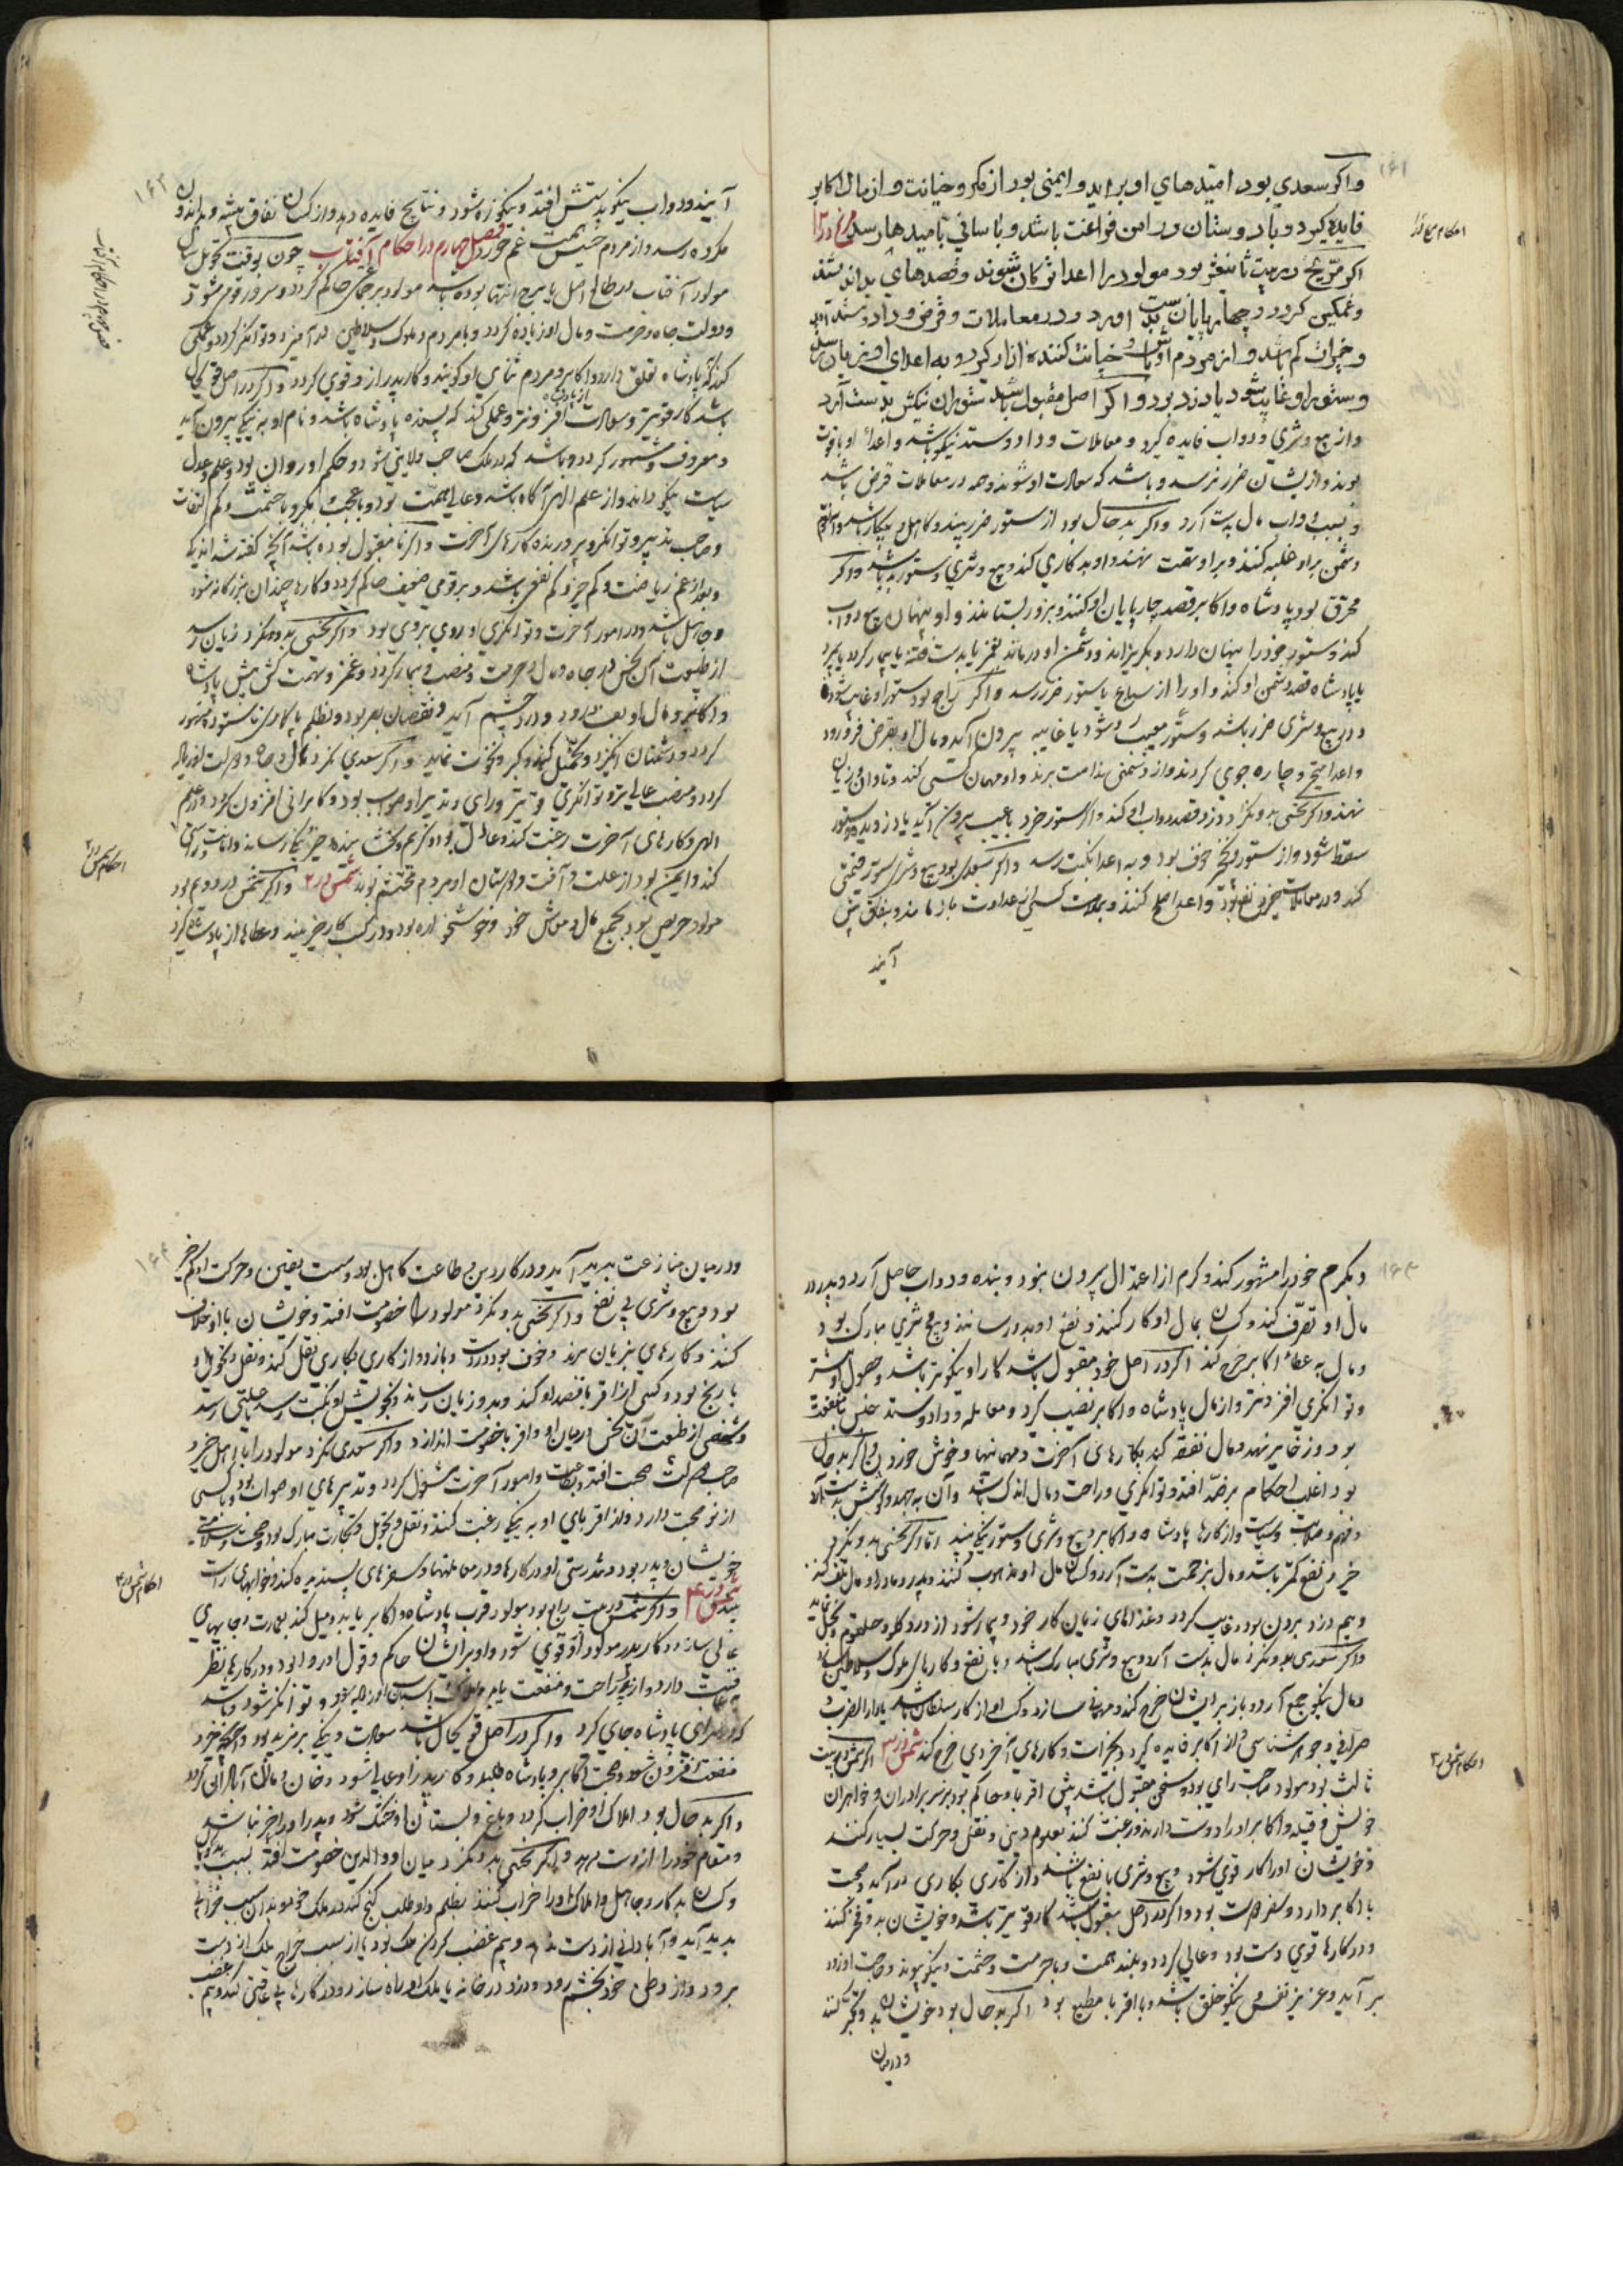 ۱۶۱
واکر سعدی بود امیدهای او براید و ایمنی بود از مکر و خیانت و از مال اکابر
فایده کیرد و با دوستان در امن فراغت باشد و باسانی بامیدها رسد مریخ در ۱۲
احکام مریخ در
اکر مریخ در بیت ثانی عشر بود مولود را اعدا بشوند و قصدهای بد اندیشند
و غمکین کردد و چهارپایان بدست اورد و در معاملات و قرض و داد و ستد
و خیرات کم باشد و از مردم اوباش و خیانت کننده ازار کیرد و به اعدای او زیان رسد
و ستور او غایب شود یا دزد برد و اکر در اصل مقبول باشد ستوران نیکش بدست آرد
و از بیع و شری و دواب فایده کیرد و معاملات و داد و ستد نیکو باشد و اعداء او با قوت
بوند و از ایشان ضرر نرسد و باشد که سعادت او شوند و همه در معاملات قرض باشد
و بسبب دواب مال بدست آرد و اکر بد حال بود از ستور ضرر بیند و کاهل و بیکار باشد
دشمن بر او غلبه کنند و بر او تهمت نهند و او بد کاری کند و بیع و شری و ستور بد باشد و اکر
محترق بود پادشاه و اکابر قصد چارپایان او کنند و بزور بستانند و او پنهان بیع دواب
کند و ستور خود را پنهان دارد و بکریزاند و دشمن او درماند
یا پادشاه قصد دشمن او کند و او را از سباع یا ستور ضرر رسد و اکر راجع بود ستور او غایب شود
و در بیع و شری ضرر باشد و ستور معیب شود یا غایبه بیرون آید و مال او بقرض فرو رود
و اعدا و چاره جوی کردند و از دشمنی ندامت برند و او مهمان کسی کند و تاوان و زیان
نهند و اکر نحسی بدو نکرد دزد قصد دواب او کند و اکر ستور خرد با عیب بیرون آید یا دزدیده
سقط شود و از ستور خوف بود و به اعدا نکبت رسد و اکر سعدی بود بیع و شرای ستور قیمتی
کند و در معاملات خیر و نفع بود و اعدا صلح کنند و
آیند
۱۶۲
آیند و دواب نیکو بدستش افتد و نیکو زه شود و نتایج فایده دهد و از کسان نفاق پیشه و بد اندرون
مکروه رسد و از مردم خسیس همت غم خورد فصل چهارم در احکام آفتاب چون بوقت تحویل سال
فصل چهارم در احکام آفتاب
مولود آفتاب در طالع اصل یا برج انتها بوده باشد مولود بر عملی حاکم کردد و سرور قوم شود
و دولت جاه و حرمت و مال او زیاده کردد و با مردم و ملوک و سلاطین درآمیزد و توانکر کردد و عملی
کند که پادشاه تعلق دارد و اکابر و مردم ثنای او کویند و کار پدر از و قوی کردد و اکر در اصل
باشد کار قویتر و سعادت افزونتر و عملی کند که پسندیده پادشاه باشد و نام او به نیکی بیرون آید
و معروف و مشهور کردد و باشد که در ملک صاحب ولایتی شود و حکم او روان بود و علم و عدل
سیاست نیکو داند و از علم الهی آکاه باشد و عالی همت بود و با عجب و تکبر و با حشمت و کم التفات
و صاحب تدبیر و توانکر و پرورنده کارهای آخرت و اکر نا مقبول بوده باشد آنچه کفته شد اندک
و بود از غم ریاضت و کم چیز و کم نفع باشد و بر قومی ضعیف حاکم کردد و کارها چندان بزرک نشود
و جاهل باشد و در امور آخرت و توانکری او روی بروی بود و اکر نحسی بدو نکرد زیان رسد
از طبیعت آن نحس در جاه و مال و حرمت و منصب و بیمار کردد و غمز و تهمت کش پیش پادشاه
و اکابر و مال او تلف شود و درد چشم آید و نقصان بصر بود و بظلم یا کاری ناستوده مشهور
کردد و دشمنان انکیزد و تحمل کند و کبر و نخوت نماید و اکر سعدی نکرد مال و جاه و دولت او زیاده
کردد و منصب عالی تر و توانکری قوی تر و رای و تدبیر او صواب بود و کامرانی افزون کردد و در علم
الهی و کارهای آخرت رغبت کند و عادل بود و کریم و بخشاینده و خیر و نیکی رساند و امانت و راستی
کند و ایمن بود از علت و آفت و دوستان او مردم محتشم بوند شمس در ۲ و اکر شمس در دوم بود
احکام شمس در ۲
مولود حریص بود بجمع مال و معاش خود و خوش خواره بود و در کسب کار خیر بیند و عطاها از پادشاه کیرد
۱۶۳
و بکرم خود را مشهور کند و کرم از اعتدال بیرون نبود و بنده و دواب حاصل آرد و پدر در
مال او تصرف کند و کسان بمال او کار کنند و نفع او بدو رسانند و بیع و شری مبارک بود
و مال به عطاء اکابر خرج کند اکر در اصل خود مقبول باشد کار او نیکوتر باشد و حصول او بیشتر
و توانکری افزونتر و از مال پادشاه و اکابر نصیب کیرد و معامله و داد و ستد جنس با منفعت
بود و ذخایر نهد و مال نفقه کند بکارهای آخرت و مهمانیها و خوش خورد و اکر بد حال
بود اغلب احکام بر ضد افتد و توانکری و راحت و مال اندک باشد و آن به جهد و کوشش بدست آرد
و نهمه و ملامت و سیاست و از کارها پادشاه و اکابر و بیع و شری و ستور نیکی بیند اما اکر نحسی بدو نکرد
خیر و نفع کمتر باشد و مال بزحمت بدست آرد و کسان مال او منهوب کنند و پدر و مادر او مال تلف کنند
و بیم دزد بردن بود و غایب کردد و غذاهای زیان کار خورد و بیمار شود از درد کلو و حلقوم و بخل نماید
و اکر سعدی بدو نکرد مال بدست آرد و بیع و شری مبارک باشد و با نفع و کارهای ملوک و سلاطین سازد
و مال نیکو جمع آرد و باز برایشان خرج کند و مهمانی سازد و کسب او از کار سلطان باشد یا دار الضرب
صرافی و جوهر شناسی و از اکابر فایده کیرد و بخیرات و کارهای اخروی خرج کند شمس در ۳ اکر شمس در بیت
احکام شمس در ۳
ثالث بود مولود صاحب رای بود و سخن مقبول باشد پیش اقربا و حاکم بود بر سر برادران و خواهران
خویش و قبیله و اکابر او را دوست دارند و رغبت کند بعلوم دینی و نقل و حرکت بسیار کنند
و خویشان او را کار قوی شود و بیع و شری با نفع باشد و از کاری بکاری درآید و صحبت
با اکابر دارد و سفر دوست بود و اکر در اصل مقبول باشد کار قوی تر باشد و خویشان بدو فخر کنند
و در کارها قوی دست بود و عالی کردد و بلند همت و با حرمت و حشمت و نیکو پیوند و حاجت او زود
بر آید و عزیز نفس و نیکو خلق باشد و با اقربا مطیع بود اکر بد حال بود خویشان بد و تکبر کند
و در میان
۱۶۴
و در میان منازعت بدید آید و در کار دین و طاعت کاهل بود و سست یقین و حرکت او کم خیر
بود و بیع و شری بی نفع و اکر نحسی بدو نکرد مولود را خصومت افتد و خویشان با او خلاف
کنند و کارهای بزیان برند و خوف بود و باز دواند از کاری بکاری نقل کند و نقل و تحویل او
با رنج بود و کسی از اقربا قصد او کند و بدو زیان رساند و بخویش او نکبت رسد یا علتی رسد
و شخصی از طبیعت آن نحس در میان او و اقربا خصومت اندازد و اکر سعدی نکرد مولود را با اهل خیر و
صاحب دولت صحبت افتد و بطاعت و امور آخرت مشغول کردد و تدبیرهای او صواب بود و با کسی
از نو محبت دارد و از اقربای او به نیکی رغبت کنند و نقل و تحویل و تجارت مبارک بود و صحت و سلامتی
خویشان و پدر بود و تندرستی او در کارها و در معاملتها و سفرهای پسندیده کند و خوابهای راست
احکام شمس در ۴
بیند شمس در ۴ و اکر شمس در بیت رابع بود مولود قرب پادشاه و اکابر یابد و میل کند بعمارت و جایهای
عالی سازد و کار پدر مولود از و قوی شود و او بر ایشان حاکم و قول او روا بود و در کارها نظر
عاقبت دارد و از پدر راحت و منفعت یابد و املاک و اسباب او زیاده شود و توانکر شود و باشد
که در سرای پادشاه جای کیرد و اکر در اصل قوی حال باشد سعادت و نیکی بر مزید بود و
منفعت افزون شود و صحبت اکابر و پادشاه طلبد و کار پدر از و عالی شود و خان و ملک آبادانی کردد
و اکر بد حال بود املاک او خراب کردد و باغ و بستان او خشک شود و پدر او را خیر نباشد
و مقام خود را از دست بدهد و اکر نحسی بدو نکرد میان او و والدین خصومت افتد بسبب
و کسان بد کار و جاهل املاک او را خراب کنند بظلم و او طلب کنج کند در ملک خود و بدان سبب خرابی
بدید آید و آبادانی از دست بدهد و بیم غصب کردن ملک بود یا از سبب خراج ملک از دست
برود و از وطن خود بخشم رود و دزد در خانه یا ملک او راه سازد و در کارها بی عاقبتی کند و بیم غصب